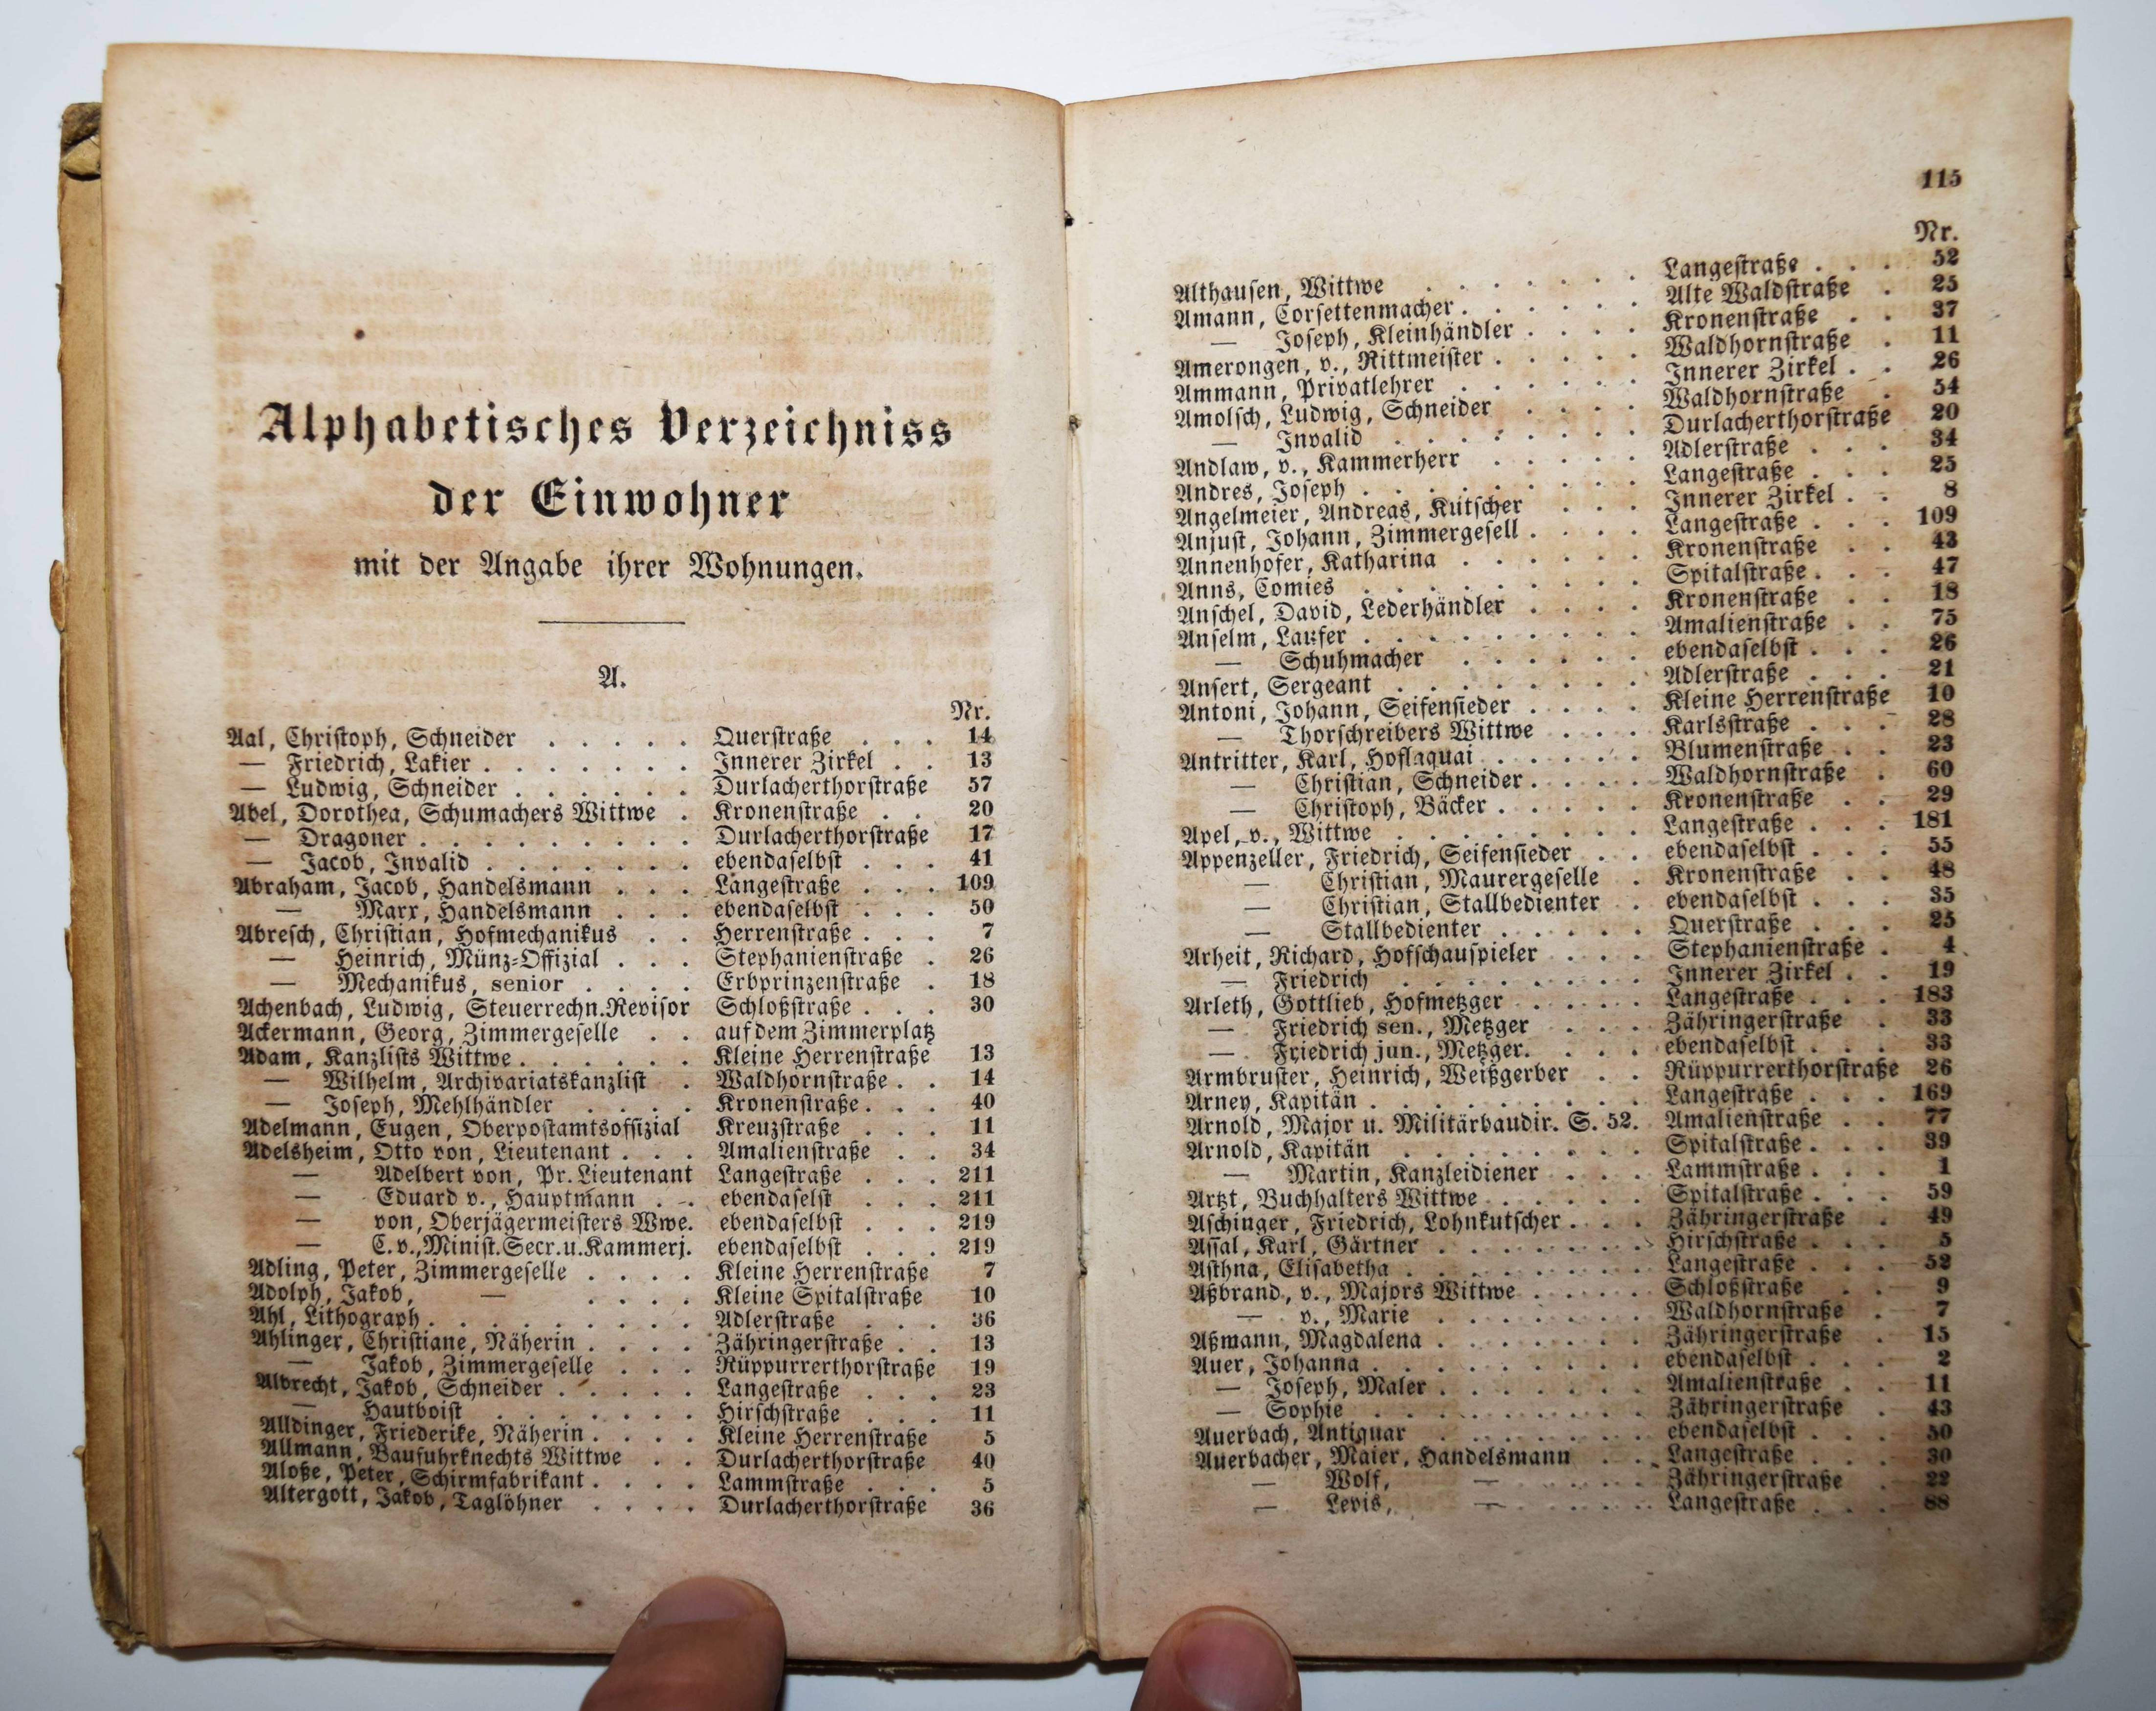 Alphabetisches Verzeichniss
der Einwohner
mit der Angabe ihrer Wohnungen.
A.
Nr.
Aal, Christoph, Schneider . . . . . Querstraße . . . 14
— Friedrich, Lakier . . . . . . . Innerer Zirkel . . 13
— Ludwig, Schneider . . . . . . Durlacherthorstraße 57
Abel, Dorothea, Schumachers Wittwe . Kronenstraße . . 20
— Dragoner . . . . . . . . . Durlacherthorstraße 17
— Jacob, Invalid . . . . . . . ebendaselbst . . . 41
Abraham, Jacob, Handelsmann . . . Langestraße . . . 109
— Marx, Handelsmann . . . ebendaselbst . . . 50
Abresch, Christian, Hofmechanikus . . Herrenstraße . . . 7
— Heinrich, Münz-Offizial . . . Stephanienstraße . 26
— Mechanikus, senior . . . . Erbprinzenstraße . 18
Achenbach, Ludwig, Steuerrechn.Revisor Schloßstraße . . . 30
Ackermann, Georg, Zimmergeselle . . auf dem Zimmerplatz
Adam, Kanzlists Wittwe . . . . . . Kleine Herrenstraße 13
— Wilhelm, Archivariatskanzlist . Waldhornstraße . . 14
— Joseph, Mehlhändler . . . . Kronenstraße . . . 40
Adelmann, Eugen, Oberpostamtsoffizial Kreuzstraße . . . 11
Adelsheim, Otto von, Lieutenant . . . Amalienstraße . . 34
— Adelbert von, Pr.Lieutenant Langestraße . . . 211
— Eduard v., Hauptmann . . ebendaselst . . . 211
— von, Oberjägermeisters Wwe. ebendaselbst . . . 219
— C.v.,Minist.Secr.u.Kammerj. ebendaselbst . . . 219
Adling, Peter, Zimmergeselle . . . . Kleine Herrenstraße 7
Adolph, Jakob, — . . . . Kleine Spitalstraße 10
Ahl, Lithograph . . . . . . . . . Adlerstraße . . . 36
Ahlinger, Christiane, Näherin . . . . Zähringerstraße . . 13
— Jakob, Zimmergeselle . . . Rüppurrerthorstraße 19
Albrecht, Jakob, Schneider . . . . . Langestraße . . . 23
— Hautboist . . . . . . . Hirschstraße . . . 11
Alldinger, Friederike, Näherin . . . . Kleine Herrenstraße 5
Allmann, Baufuhrknechts Wittwe . . Durlacherthorstraße 40
Aloße, Peter, Schirmfabrikant . . . . Lammstraße . . . 5
Altergott, Jakob, Taglöhner . . . . Durlacherthorstraße 36
115
Nr.
Althausen, Wittwe . . . . . . Langestraße . . . 52
Amann, Corsettenmacher . . . . . . Alte Waldstraße . 25
— Joseph, Kleinhändler . . . . Kronenstraße . . 37
Amerongen, v., Rittmeister . . . . . Waldhornstraße . 11
Ammann, Privatlehrer . . . . . . Innerer Zirkel . . 26
Amolsch, Ludwig, Schneider . . . . Waldhornstraße . 54
— Invalid . . . . . . . . Durlacherthorstraße 20
Andlaw, v., Kammerherr . . . . . Adlerstraße . . . 34
Andres, Joseph . . . . . . . . . Langestraße . . . 25
Angelmeier, Andreas, Kutscher . . . Innerer Zirkel . . 8
Anjust, Johann, Zimmergesell . . . . Langestraße . . . 109
Annenhofer, Katharina . . . . . . Kronenstraße . . 43
Anns, Comies . . . . . . . . . Spitalstraße . . . 47
Anschel, David, Lederhändler . . . . Kronenstraße . . 18
Anselm, Laufer . . . . . . . . . Amalienstraße . . 75
— Schuhmacher . . . . . . ebendaselbst . . . 26
Ansert, Sergeant . . . . . . . . Adlerstraße . . . 21
Antoni, Johann, Seifensieder . . . . Kleine Herrenstraße 10
— Thorschreibers Wittwe . . . Karlsstraße . . . 28
Antritter, Karl, Hoflaquai . . . . . Blumenstraße . . 23
— Christian, Schneider . . . . Waldhornstraße . 60
— Christoph, Bäcker . . . . . Kronenstraße . . 29
Apel, v., Wittwe . . . . . . . . Langestraße . . . 181
Appenzeller, Friedrich, Seifensieder . . ebendaselbst . . . 55
— Christian, Maurergeselle . Kronenstraße . . 48
— Christian, Stallbedienter . ebendaselbst . . . 35
— Stallbedienter . . . . . Querstraße . . . 25
Arheit, Richard, Hofschauspieler . . . Stephanienstraße . 4
— Friedrich . . . . . . . . Innerer Zirkel . . 19
Arleth, Gottlieb, Hofmetzger . . . . Langestraße . . . 183
— Friedrich sen., Metzger . . . Zähringerstraße . 33
— Friedrich jun., Metzger. . . . ebendaselbst . . . 33
Armbruster, Heinrich, Weißgerber . . Rüppurrerthorstraße 26
Arney, Kapitän . . . . . . . . . Langestraße . . . 169
Arnold, Major u. Militärbaudir. S. 52. Amalienstraße . . 77
Arnold, Kapitän . . . . . . . . Spitalstraße . . . 39
— Martin, Kanzleidiener . . . . Lammstraße . . . 1
Artzt, Buchhalters Wittwe . . . . . Spitalstraße . . . 59
Aschinger, Friedrich, Lohnkutscher . . . Zähringerstraße . 49
Assal, Karl, Gärtner . . . . . . . Hirschstraße . . . 5
Asthna, Elisabetha . . . . . . . . Langestraße . . . 52
Aßbrand, v., Majors Wittwe . . . . . Schloßstraße . . 9
— v., Marie . . . . . . . Waldhornstraße . 7
Aßmann, Magdalena . . . . . . . Zähringerstraße . 15
Auer, Johanna . . . . . . . . . ebendaselbst . . . 2
— Joseph, Maler . . . . . . . Amalienstraße . . 11
— Sophie . . . . . . . . . Zähringerstraße . 43
Auerbach, Antiquar . . . . . . . ebendaselbst . . . 50
Auerbacher, Maier, Handelsmann . . Langestraße . . . 30
— Wolf, — . . . . Zähringerstraße . 22
— Levis, — . . . . Langestraße . . . 88